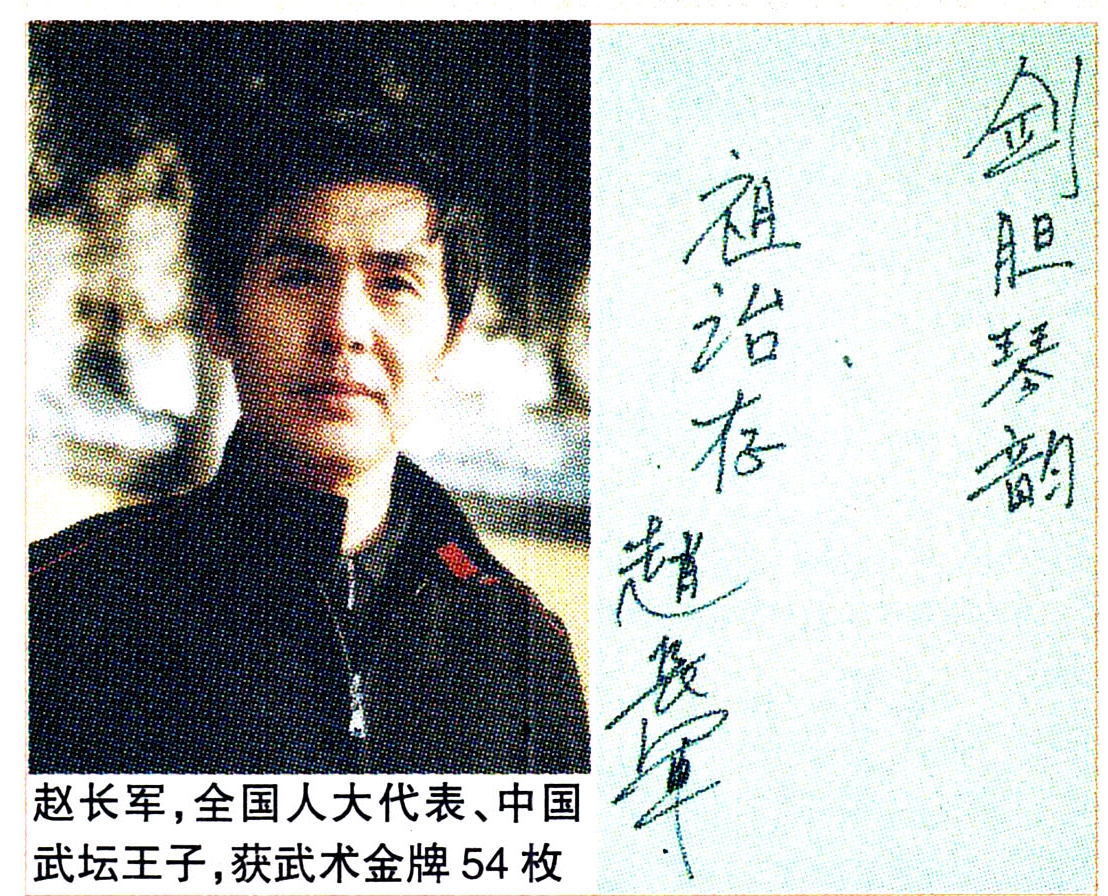 剑胆琴韵
祖治存
趙長軍
赵长军,全国人大代表、中国
武坛王子,获武术金牌54枚